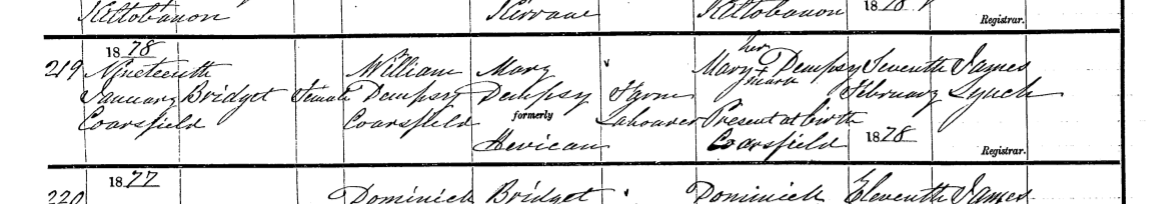 Kiltobanon Kirrane Kiltobanon 1878 Registrar.
1878 her
219 Nineteenth William Mary Mary Dempsy Seventh James
mark
January Bridget Female Dempsy Dempsy Farm February Lynch
formerly
Coarsfield Coarsfield Labourer Present at birth
Hevican Coarsfield 1878 Registrar.
1877
220 Dominick Bridget Dominick Eleventh James